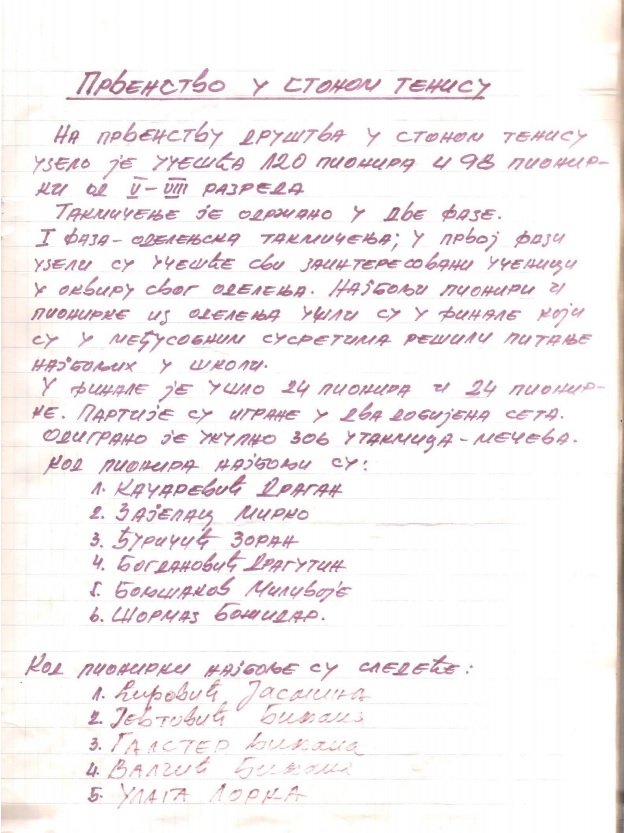 Првенство у стоном тенису
На првенству друштва у стоном тенису
узело је учешћа 120 пионира и 98 пионир-
ки од V-VIII разреда
Такмичење је одржано у две фазе.
I фаза-оделењска такмичења; у првој фази
узели су учешће сви заинтересовани ученици
у оквиру свог оделења. Најбољи пионири и
пионирке из оделења ушли су у финале који
су у међусобним сусретима решили питање
најбољих у школи.
У финале је ушло 24 пионира и 24 пионир-
ке. Партије су игране у два добијена сета.
Одиграно је укупно 306 утакмица-мечева.
Код пионира најбољи су:
1. Качаревић Драган
2. Зајелац Мирко
3. Ђуричић Зоран
4. Богдановић Драгутин
5. Бокшаков Миливоје
6. Шормаз Божидар.
Код пионирки најбоље су следеће:
1. Ћировић Јасмина
2. Јевтовић Биљана
3. Галстер Биљана
4. Валчив Биљана
5. Улага Лорка